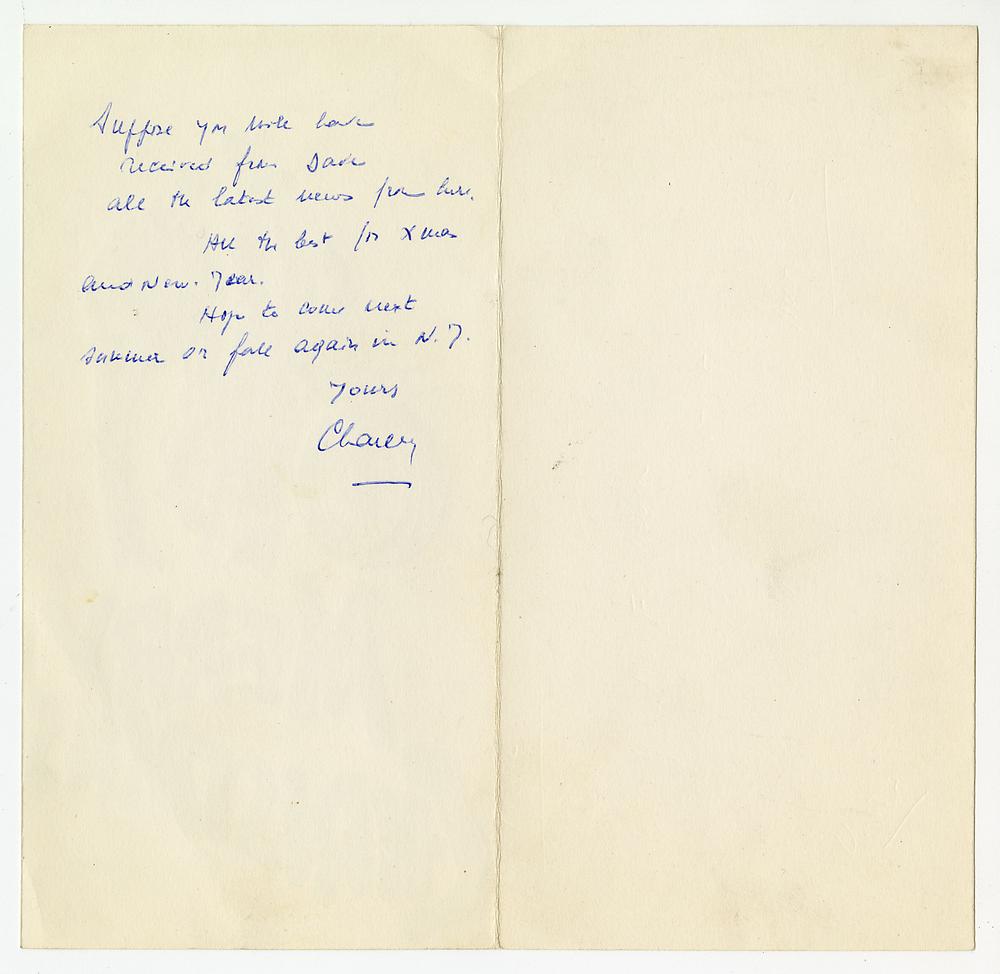 Suppose you will have
received from Dave
all the latest news from here.
All the best for Xmas
and New. Year.
Hope to come next
summer or fall again in N.Y.
Yours